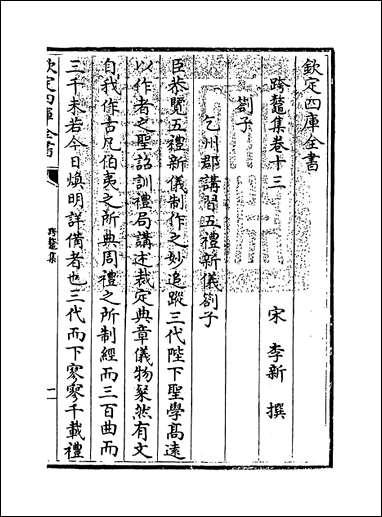 欽定四庫全書
跨鼇集卷十三
宋 李新 撰
劄子
乞州郡講習五禮新儀劄子
臣恭覽五禮新儀制作之妙追蹤三代陛下聖學髙遠
以作者之聖詔訓禮局講述裁定典章儀物粲然有文
自我作古凡伯夷之所典周禮之所制經而三百曲而
三千未若今日煥明詳備者也三代而下寥寥千載禮
欽定四庫全書
跨鼇集
一